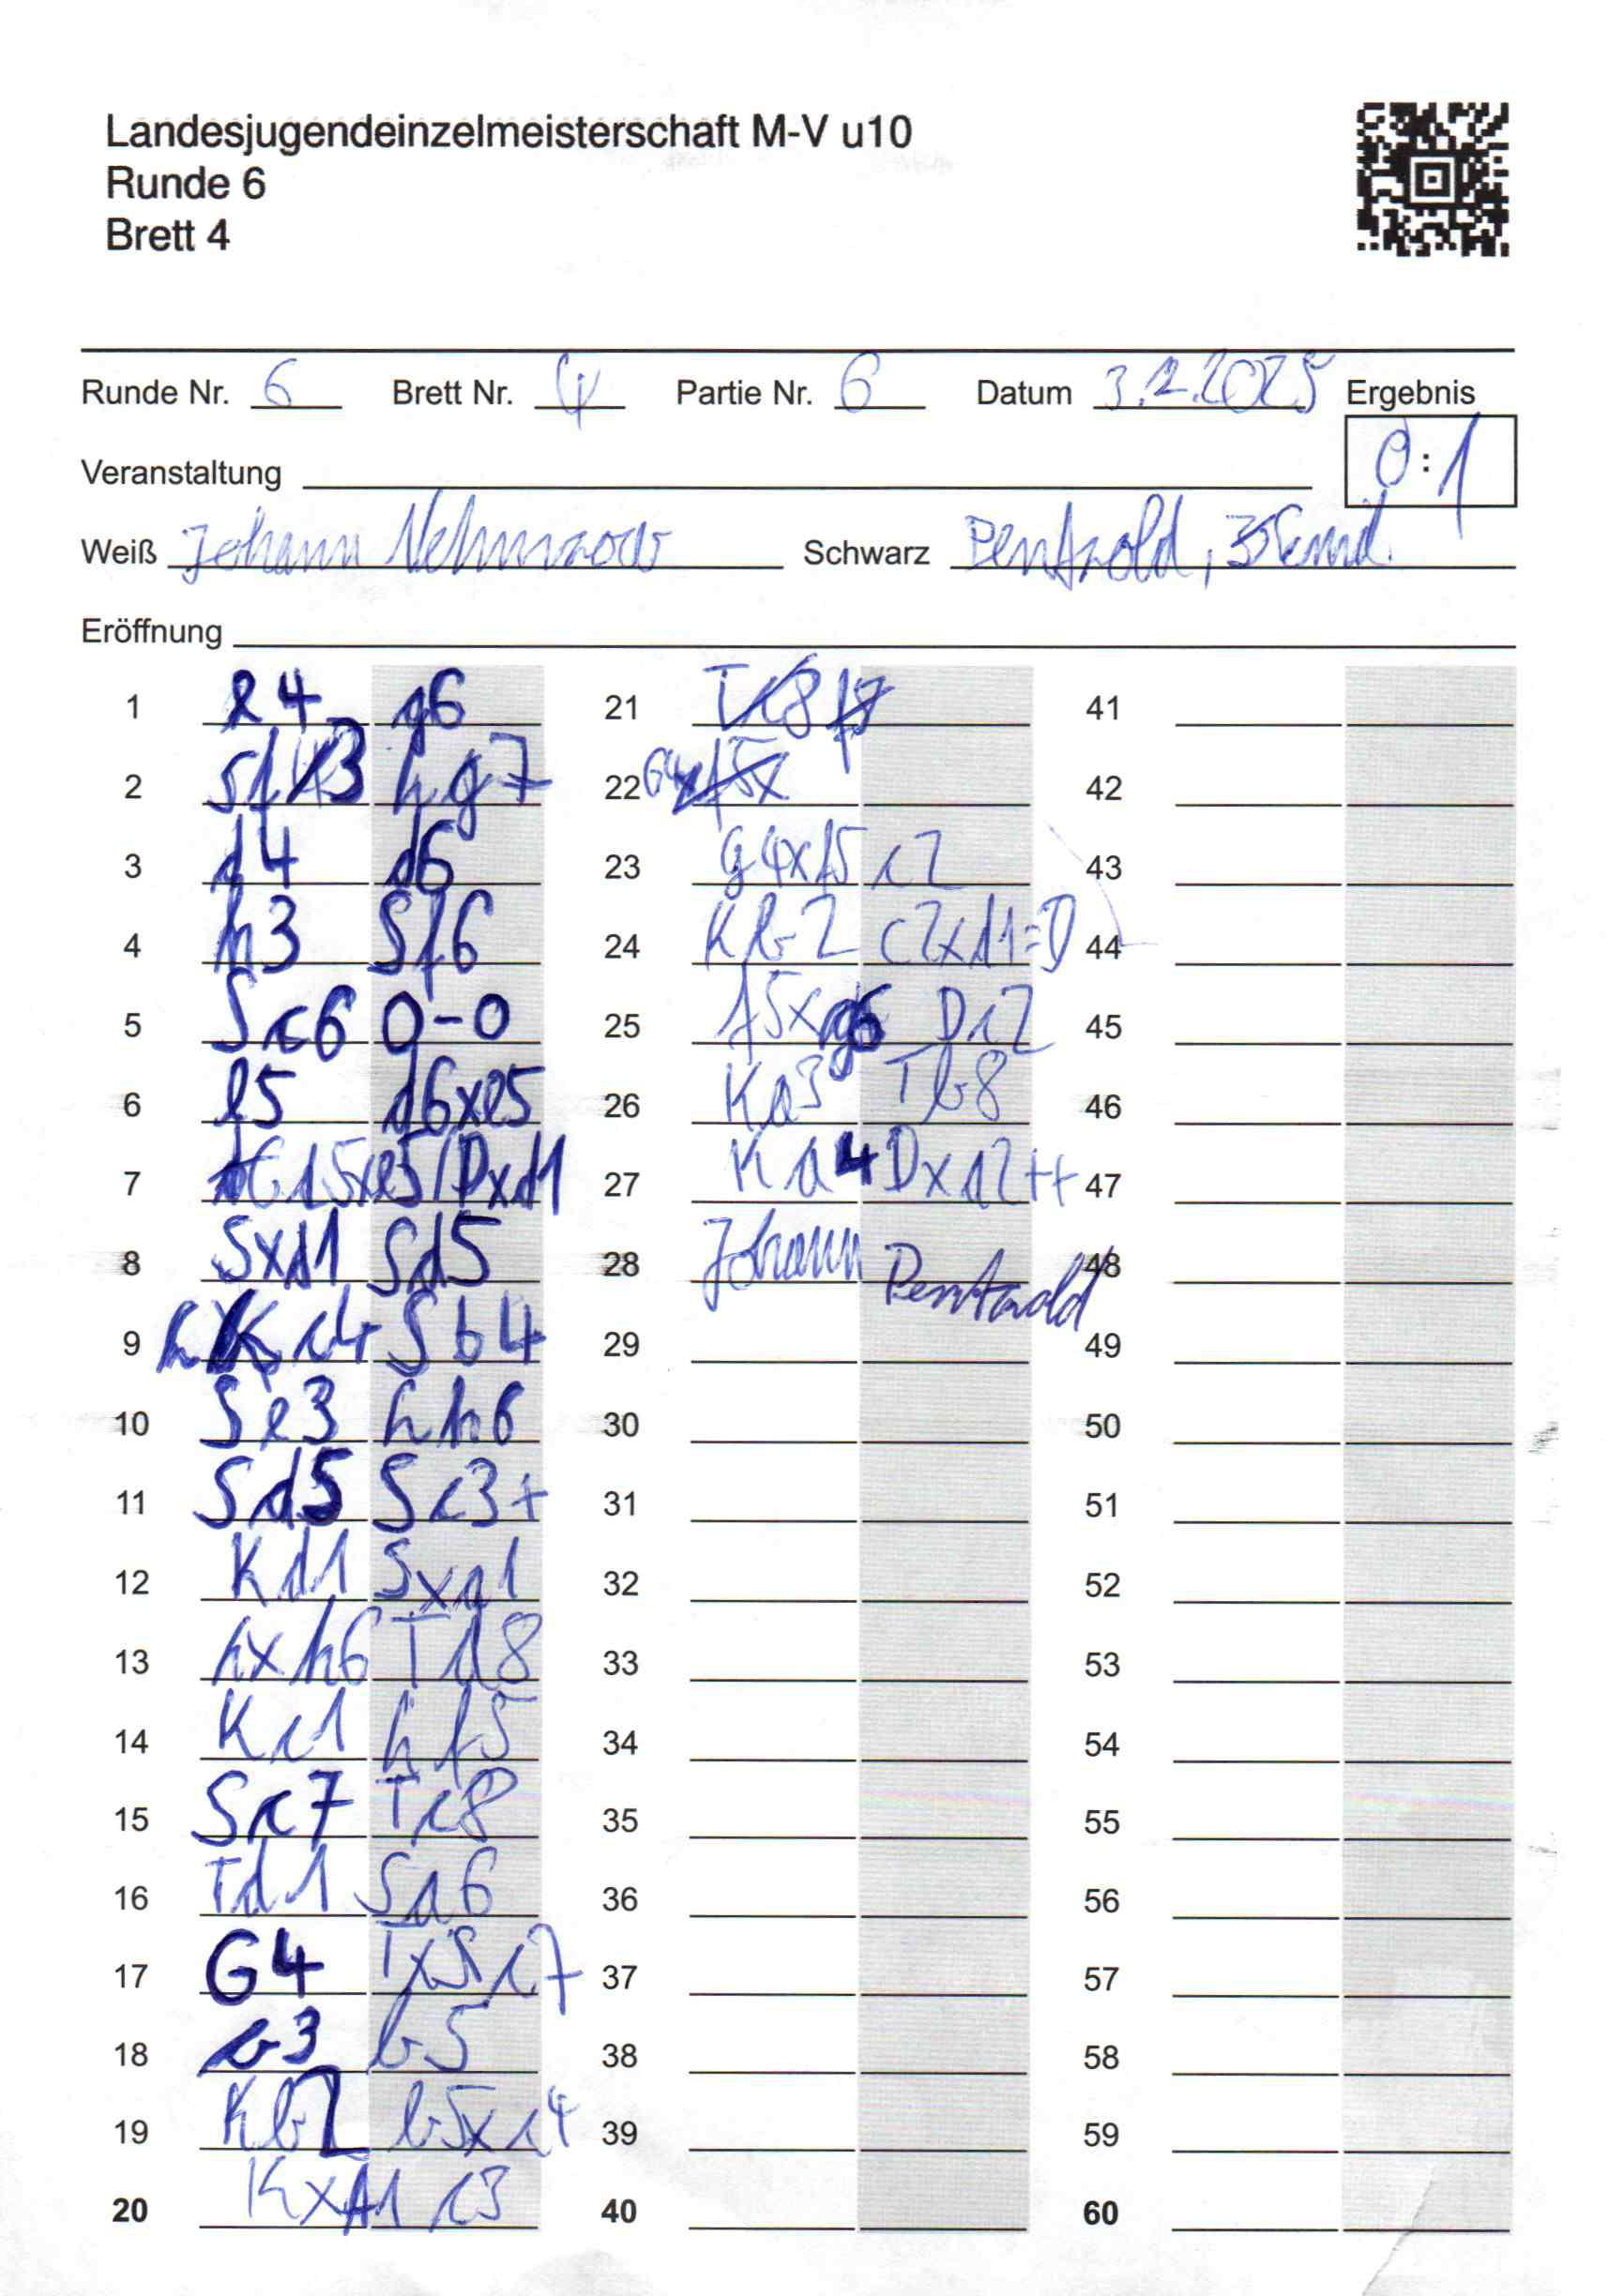 Landesjugendeinzelmeisterschaft M-V u10
Runde 6
Brett 4
Runde Nr. 6 Brett Nr. 4 Partie Nr. 6 Datum 3.2.2025 Ergebnis
0:1
Veranstaltung
Weiß Johann Schwarz
Eröffnung
1 e4 g6 21 41
2 Sf3 hg7 22 42
3 d4 d6 23 g4xf5 c2 43
4 h3 Sf6 24 Kb2 c2xd1=D 44
5 Sc6 0-0 25 f5xg6 Dc2 45
6 e5 d6xe5 26 Ka3 Tb8 46
7 Dxd1 27 Ka4 Dxa2++ 47
8 Sxd1 Sd5 28 Johann 48
9 c4 Sb4 29 49
10 Se3 hh6 30 50
11 Sd5 Sc3+ 31 51
12 Kd1 Sxa1 32 52
13 hxh6 Td8 33 53
14 Kc1 hf5 34 54
15 Sc7 Tc8 35 55
16 Td1 Sa6 36 56
17 G4 TxSc7 37 57
18 b3 b5 38 58
19 Kb2 b5xc4 39 59
20 KxA1 c3 40 60